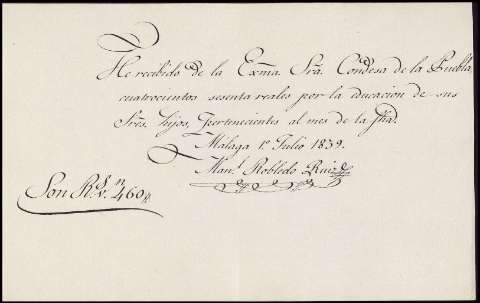 He recibido de la Exma. Sra. Condesa de la Puebla
cuatrocientos sesenta reales por la educacion de sus
Sres. hijos, pertenecientes al mes de la fha.
Malaga 1º Julio 1839.
Man.l Robledo Ruiz
Son R.s v.n 460